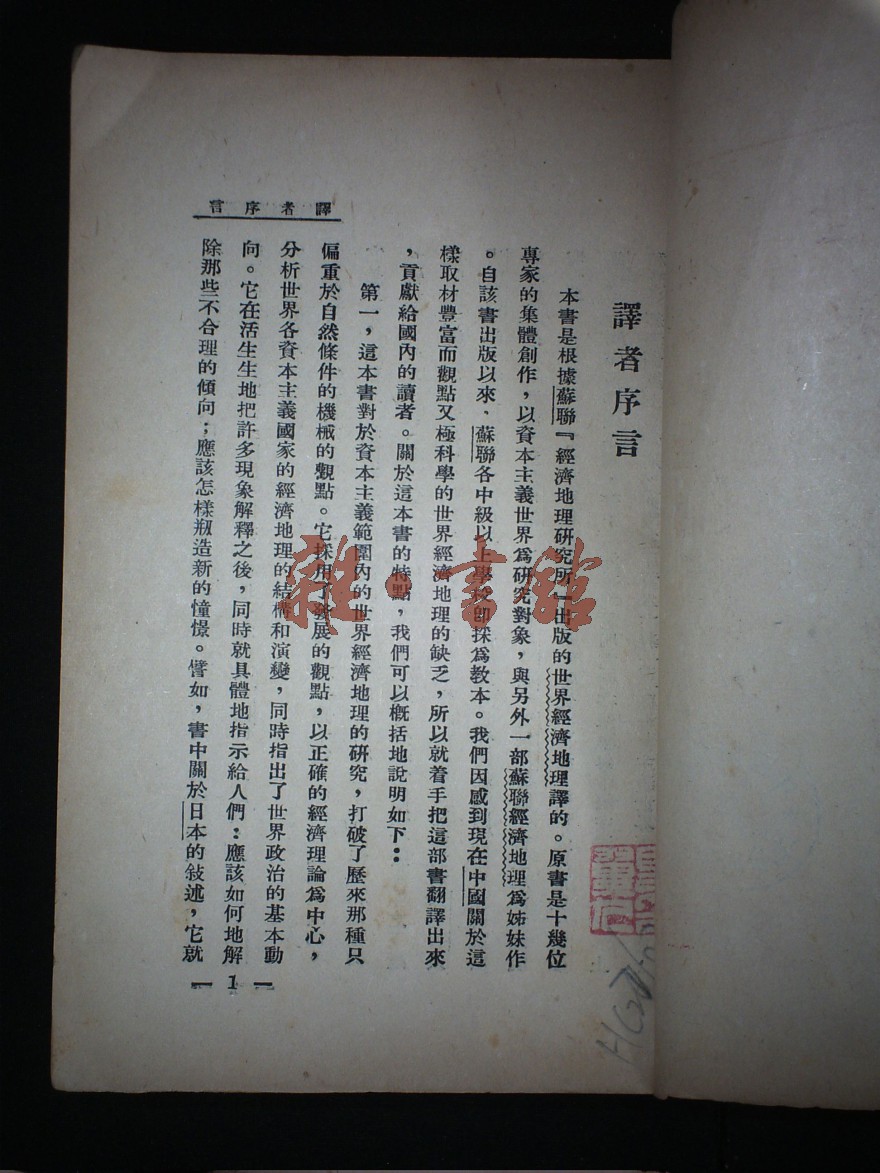 譯者序言
本書是根據蘇聯『經濟地理研究所』出版的世界經濟地理譯的。原書是十幾位
專家的集體創作，以資本主義世界爲研究對象，與另外一部蘇聯經濟地理爲姊妹作
。自該書出版以來，蘇聯各中級以上學校卽採爲教本。我們因感到現在中國關於這
樣取材豐富而觀點又極科學的世界經濟地理的缺乏，所以就着手把這部書翻譯出來
，貢獻給國內的讀者。關於這本書的特點，我們可以概括地說明如下：
第一，這本書對於資本主義範圍內的世界經濟地理的研究，打破了歷來那種只
偏重於自然條件的機械的觀點。它採用了發展的觀點，以正確的經濟理論爲中心，
分析世界各資本主義國家的經濟地理的結構和演變，同時指出了世界政治的基本動
向。它在活生生地把許多現象解釋之後，同時就具體地指示給人們：應該如何地解
除那些不合理的傾向；應該怎樣剏造新的憧憬。譬如，書中關於日本的敍述，它就
譯者序言
— 1 —
雜·書館